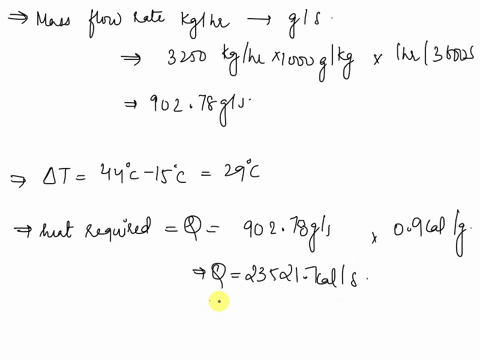 ⇒ Mass flow rate kg/hr → g/s
⇒ 3250 kg/hr × 1000 g/kg × 1hr/3600s
⇒ 902.78 g/s.
⇒ ΔT = 44°C - 15°C = 29°C
⇒ heat required = Q = 902.78 g/s × 0.9 cal/g.
⇒ Q = 23521.7 cal/s.